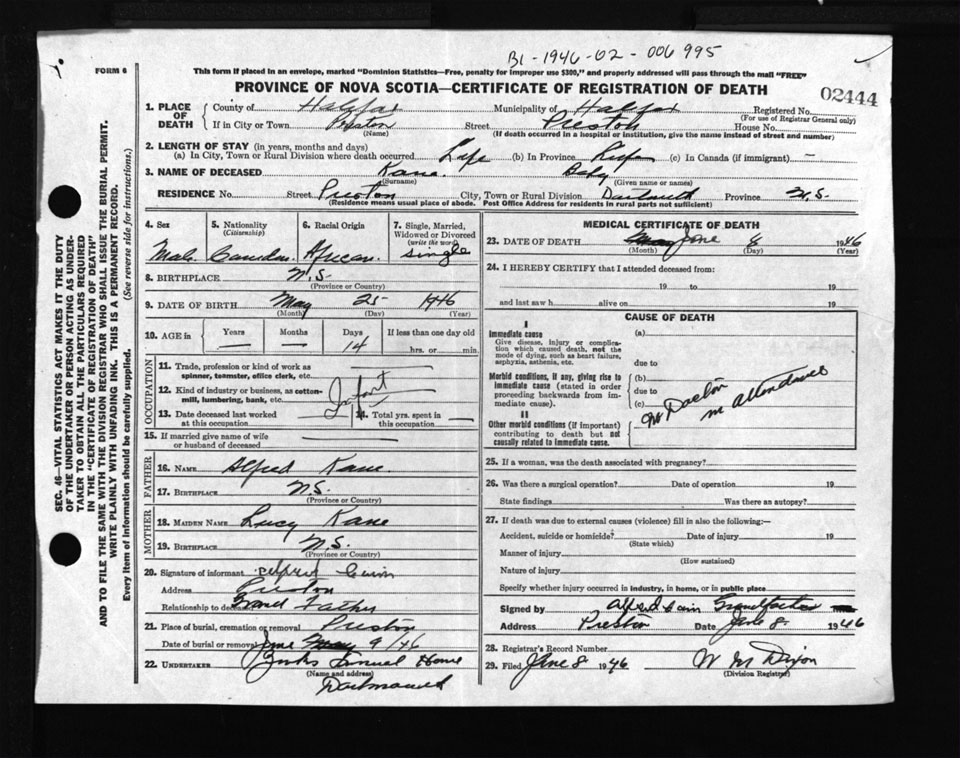 B1-1946-02-006995
FORM 6
This form if placed in an envelope, marked "Dominion Statistics—Free, penalty for improper use $300," and properly addressed will pass through the mail "FREE"
PROVINCE OF NOVA SCOTIA—CERTIFICATE OF REGISTRATION OF DEATH
02444
1. PLACE OF DEATH
County of Halifax Municipality of Halifax Registered No.
(For use of Registrar General only)
If in City or Town Preston Street Preston House No.
(Name) (If death occurred in a hospital or institution, give the name instead of street and number)
2. LENGTH OF STAY (in years, months and days)
(a) In City, Town or Rural Division where death occurred Life (b) In Province Life (c) In Canada (if immigrant) —
3. NAME OF DECEASED Kane. Baby
(Surname) (Given name or names)
RESIDENCE No. Street Preston City, Town or Rural Division Dartmouth Province N.S.
(Residence means usual place of abode. Post Office Address for residents in rural parts not sufficient)
SEC. 46—VITAL STATISTICS ACT MAKES IT THE DUTY
OF THE UNDERTAKER OR PERSON ACTING AS UNDER-
TAKER TO OBTAIN ALL THE PARTICULARS REQUIRED
IN THE "CERTIFICATE OF REGISTRATION OF DEATH"
AND TO FILE THE SAME WITH THE DIVISION REGISTRAR WHO SHALL ISSUE THE BURIAL PERMIT.
WRITE PLAINLY WITH UNFADING INK. THIS IS A PERMANENT RECORD.
Every item of information should be carefully supplied. (See reverse side for instructions.)
4. Sex 5. Nationality (Citizenship) 6. Racial Origin 7. Single, Married, Widowed or Divorced (write the word)
Male. African. Single
8. BIRTHPLACE N.S.
(Province or Country)
9. DATE OF BIRTH May 25 1946
(Month) (Day) (Year)
10. AGE in Years Months Days If less than one day old
— — 14 hrs. or min.
OCCUPATION
11. Trade, profession or kind of work as
spinner, teamster, office clerk, etc.
12. Kind of industry or business, as cotton-
mill, lumbering, bank, etc.
13. Date deceased last worked
at this occupation
14. Total yrs. spent in
this occupation
15. If married give name of wife
or husband of deceased
FATHER
16. NAME Alfred Kane
17. BIRTHPLACE N.S.
(Province or Country)
MOTHER
18. MAIDEN NAME Lucy Kane
19. BIRTHPLACE N.S.
(Province or Country)
20. Signature of informant Alfred Cain
Address Preston
Relationship to deceased Grand Father
21. Place of burial, cremation or removal Preston
Date of burial or removal June May 9 /46
22. UNDERTAKER Funeral Home
(Name and address)
Dartmouth
MEDICAL CERTIFICATE OF DEATH
23. DATE OF DEATH May June 8 1946
(Month) (Day) (Year)
24. I HEREBY CERTIFY that I attended deceased from:
19 to 19
and last saw h alive on 19
CAUSE OF DEATH
I
Immediate cause
Give disease, injury or complica-
tion which caused death, not the
mode of dying, such as heart failure,
asphyxia, asthenia, etc.
(a)
due to
Morbid conditions, if any, giving rise to
immediate cause (stated in order
proceeding backwards from im-
mediate cause).
(b)
due to
(c)
No Doctor
in attendance
II
Other morbid conditions (if important)
contributing to death but not
causally related to immediate cause.
25. If a woman, was the death associated with pregnancy?
26. Was there a surgical operation? Date of operation 19
State findings Was there an autopsy?
27. If death was due to external causes (violence) fill in also the following:—
Accident, suicide or homicide? Date of injury 19
(State which)
Manner of injury
(How sustained)
Nature of injury
Specify whether injury occurred in industry, in home, or in public place
Signed by Alfred Cain Grandfather
Address Preston Date June 8. 1946
28. Registrar's Record Number
29. Filed June 8 1946 W M Dixon
(Division Registrar)